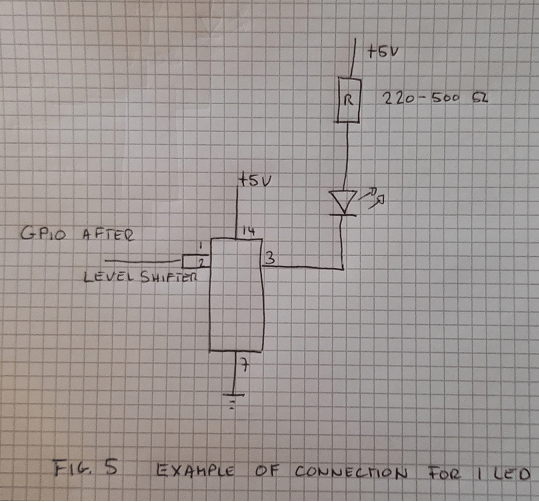 +5V
R 220-500 Ω
+5V
14
GPIO AFTER
1
2
3
LEVEL SHIFTER
7
FIG. 5 EXAMPLE OF CONNECTION FOR 1 LED